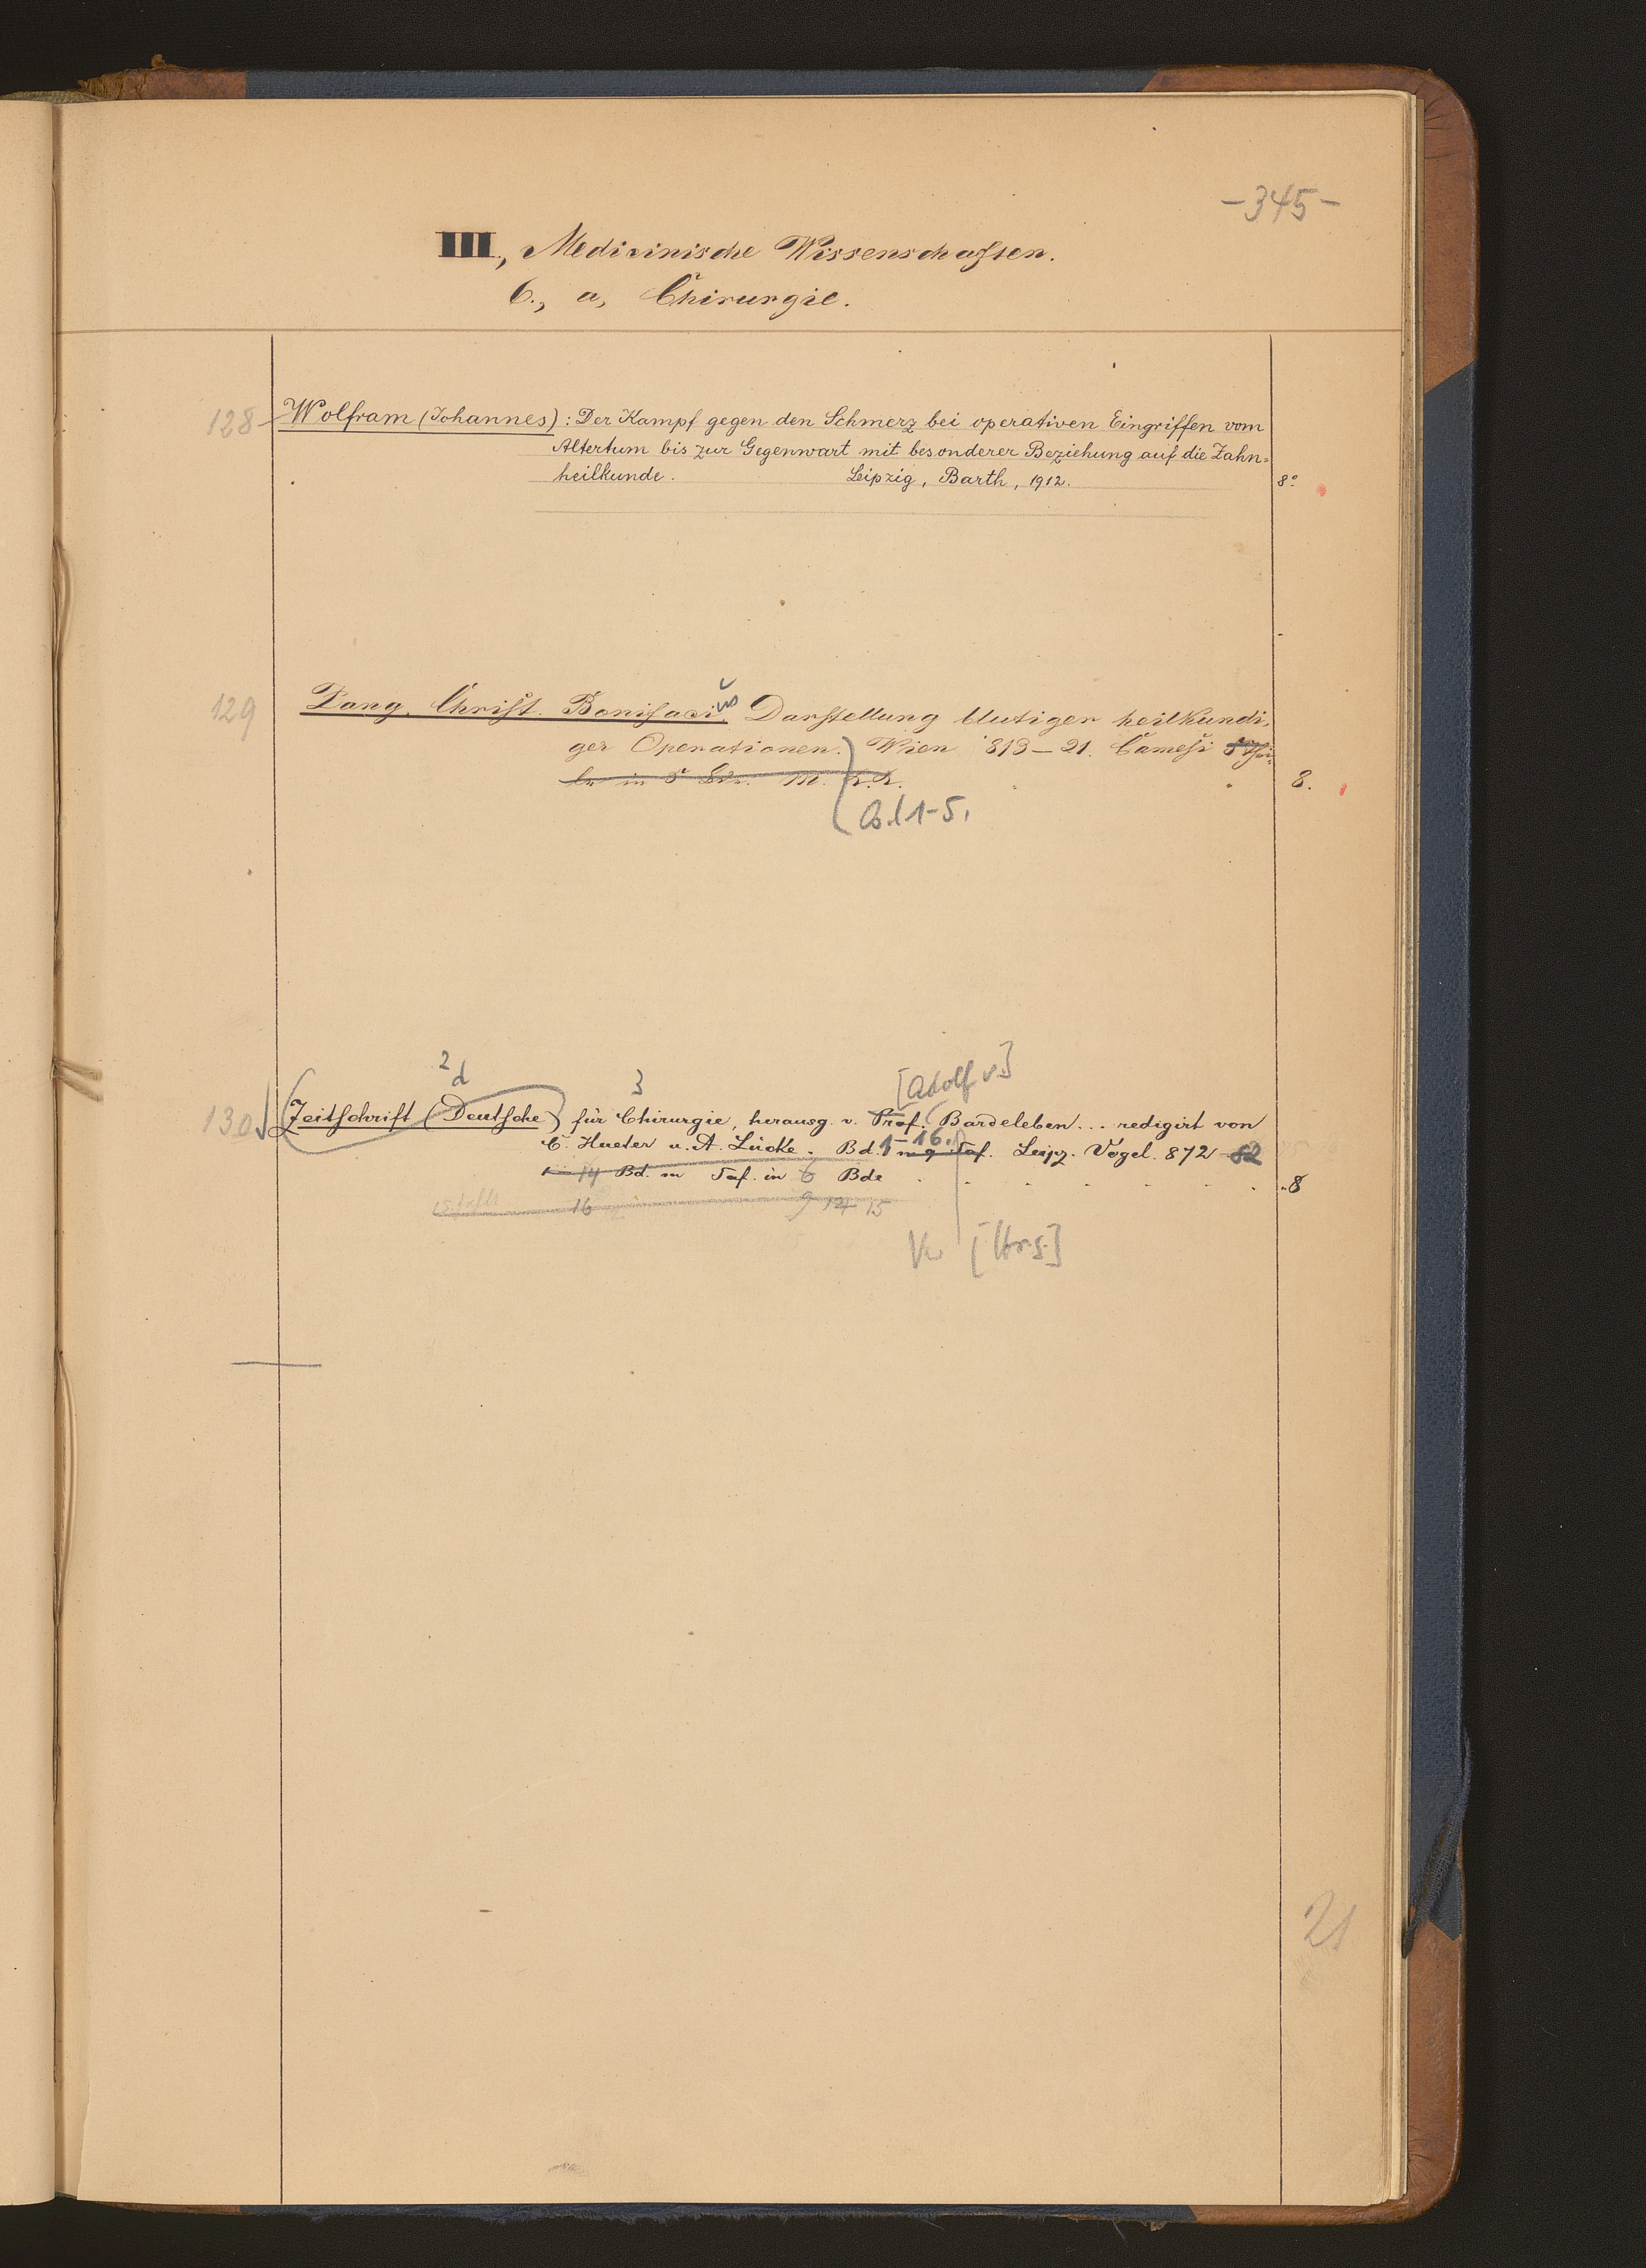 -345-
III., Medicinische Wissenschaften.
6., a, Chirurgie.
128 Wolfram (Johannes): Der Kampf gegen den Schmerz bei operativen Eingriffen vom
Altertum bis zur Gegenwart mit besonderer Beziehung auf die Zahn=
heilkunde. Leipzig, Barth, 1912. 8°
129 Zang, Christ. Bonifacius Darstellung blutiger heilkundi,
ger Operationen. Wien 813-21. Camesi 5 Thei
le in 5 Bdn. m. K.K. 8.
Bd 1-5.
2 d 3 [Adolf v.]
130 Zeitschrift (Deutsche) für Chirurgie, herausg. v. Prof. Bardeleben... redigirt von
C. Hueter u. A. Lücke. Bd. 1-16. Taf. Leipz. Vogel. 872-82
14 Bd. m Taf. in 6 Bde 8
16 9 14 15
[Hrs.]
21